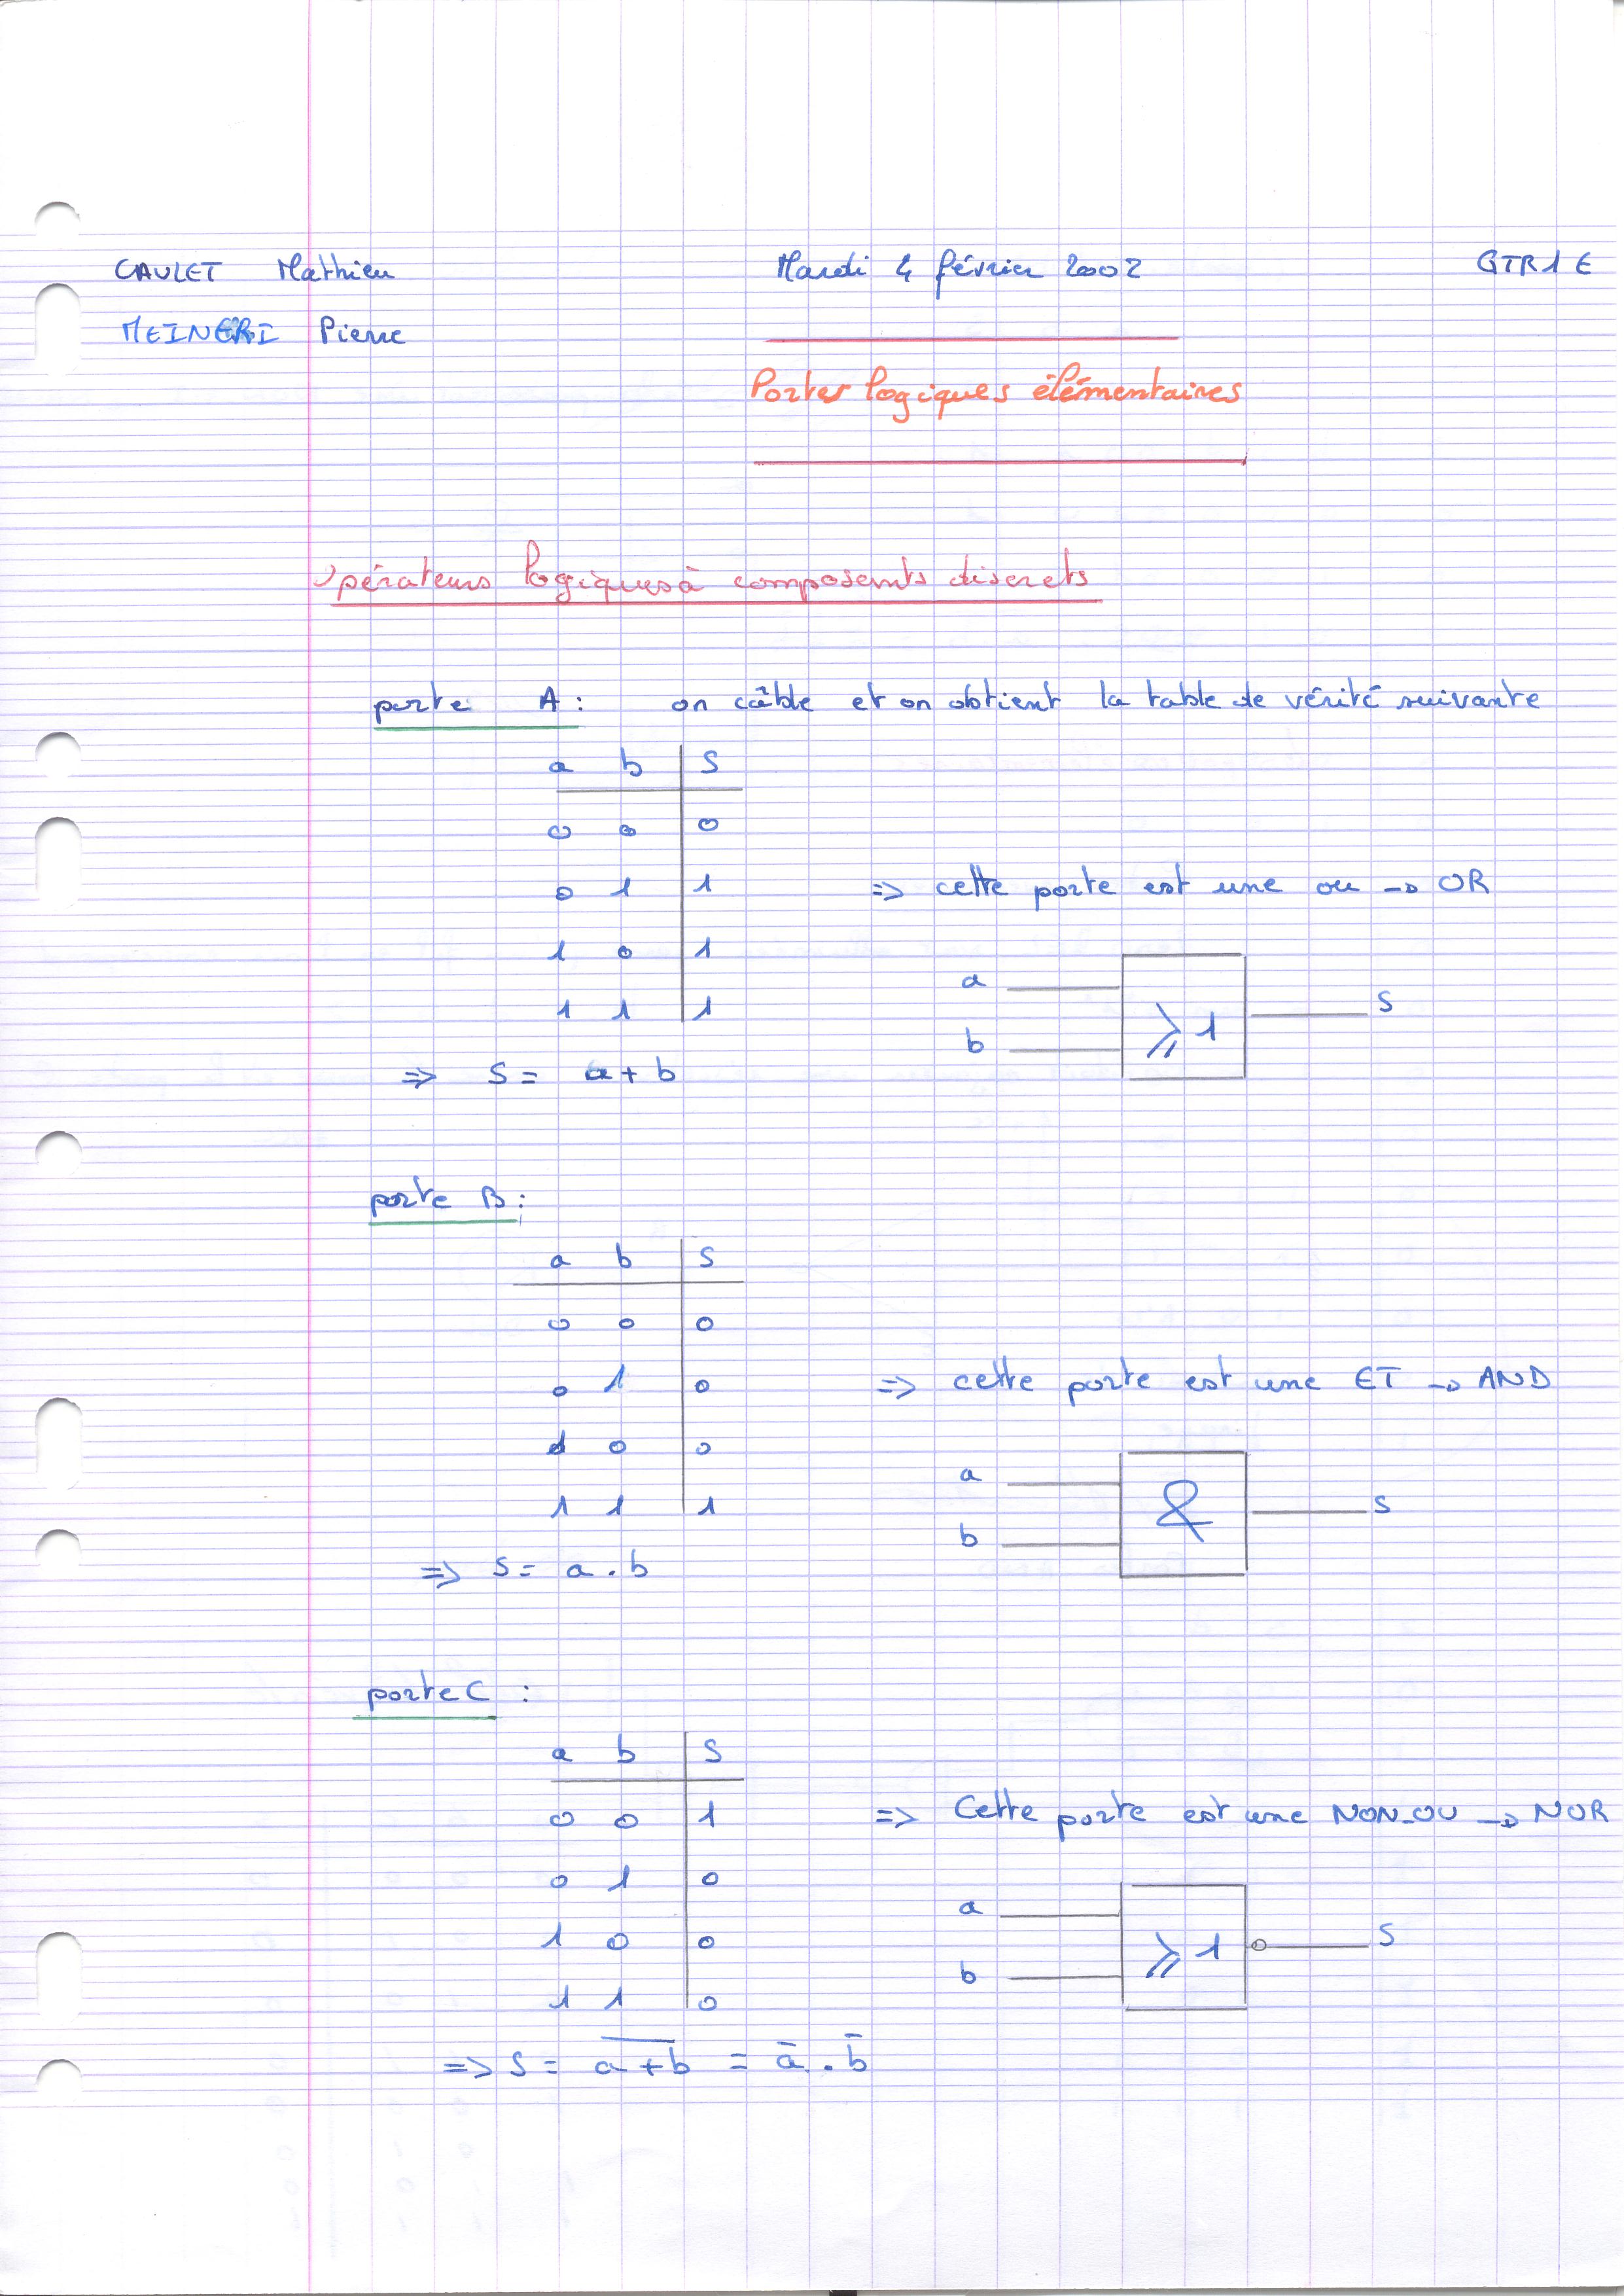 CAULET Mathieu Mardi 4 février 2002 GTR1 E
MEINERI Pierre
Portes logiques élémentaires
Opérateurs logiques à composants discrets
porte A : on câble et on obtient la table de vérité suivante
a b S
0 0 0
0 1 1 => cette porte est une ou → OR
1 0 1
a
b
≥1
S
1 1 1
=> S = a + b
porte B :
a b S
0 0 0
0 1 0 => cette porte est une ET → AND
1 0 0
a
b
&
S
1 1 1
=> S = a . b
porte C :
a b S
0 0 1 => Cette porte est une NON-OU → NOR
0 1 0
a
b
≥1
S
1 0 0
1 1 0
=> S = a̅+̅b̅ = a̅ . b̅